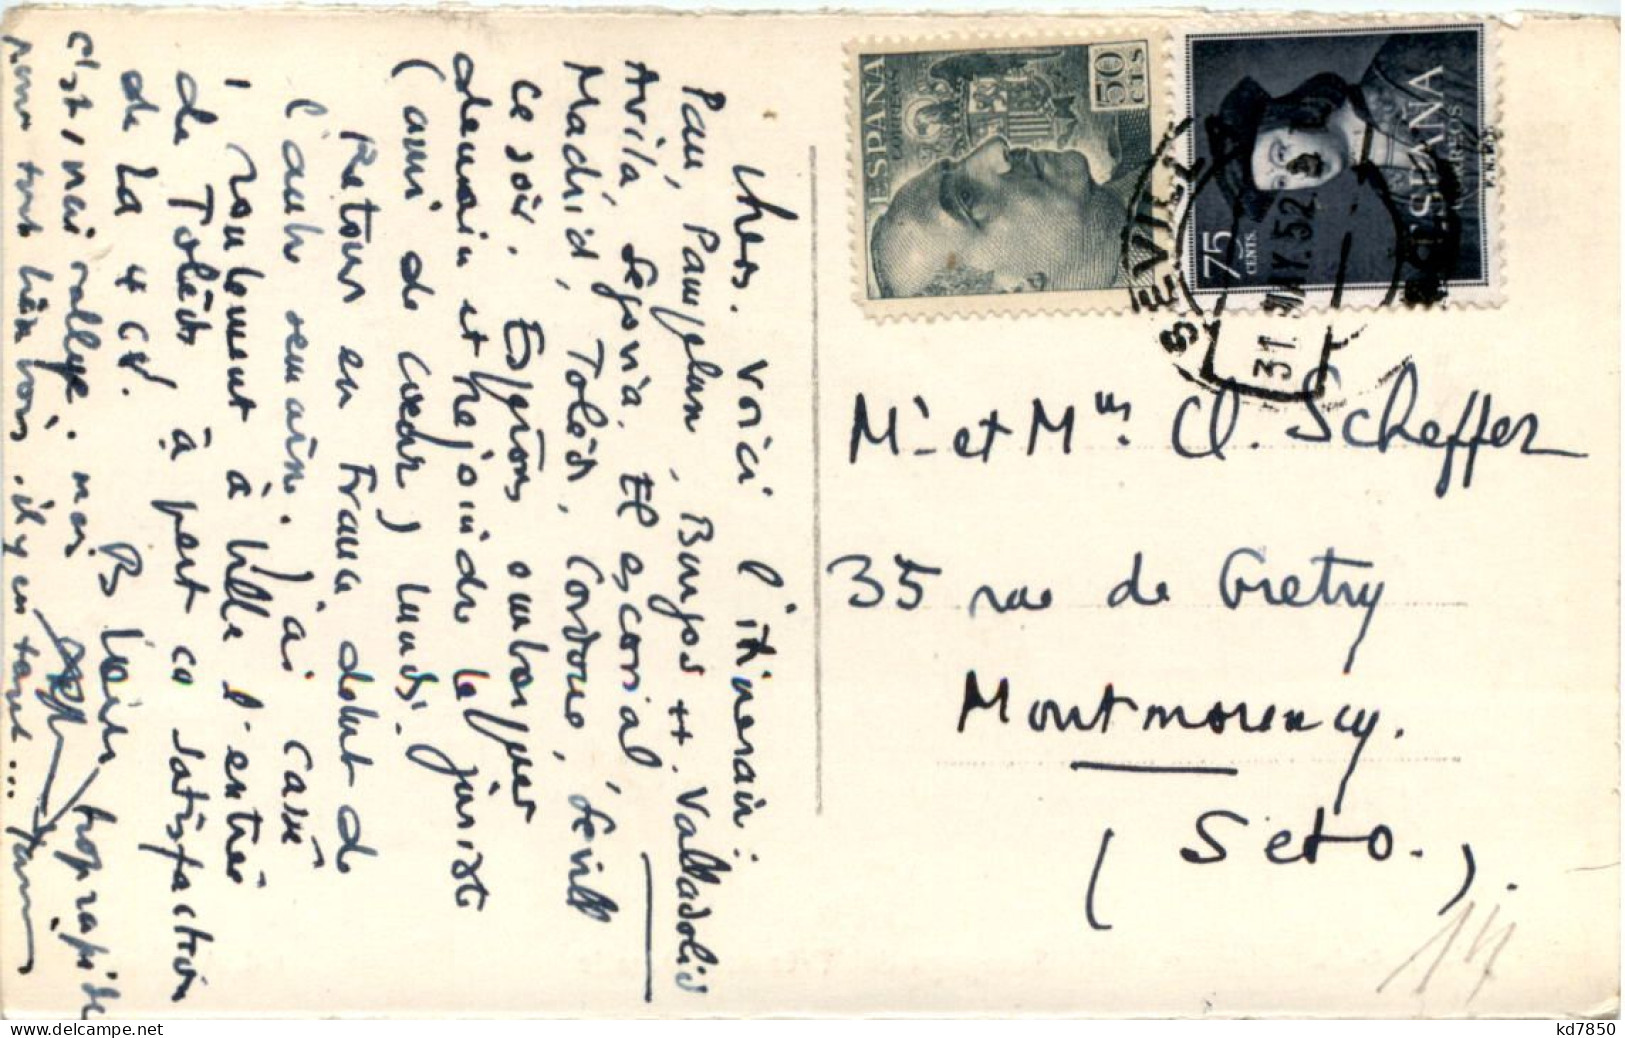 Chers. Voici l'itinéraire :
Pau, Pampelune, Burgos ++. Valladolid
Avila, Segovia. El escorial,
Madrid, Tolède, Cordoue, Sevilla
ce soir. Espérons embarquer
demain et rejoindre le juriste
(ami de cœur) lundi.
Retour en France début de
l'autre semaine. J'ai cassé
1 roulement à bille l'entrée
de Tolède à part ça satisfaction
de la 4 CV.
Bs
trop rapide
c'est 1 vrai rallye.
pour tout bien voir. il y en a tant...
ESPAÑA
CORREOS
50
CTS
ESPAÑA
CORREOS
75
CENTS.
SEVILLA
31. MAY. 52
Mr et Mme Cl. Scheffer
35 rue de Gretry
Montmorency.
(Seto.).
14
kd7850